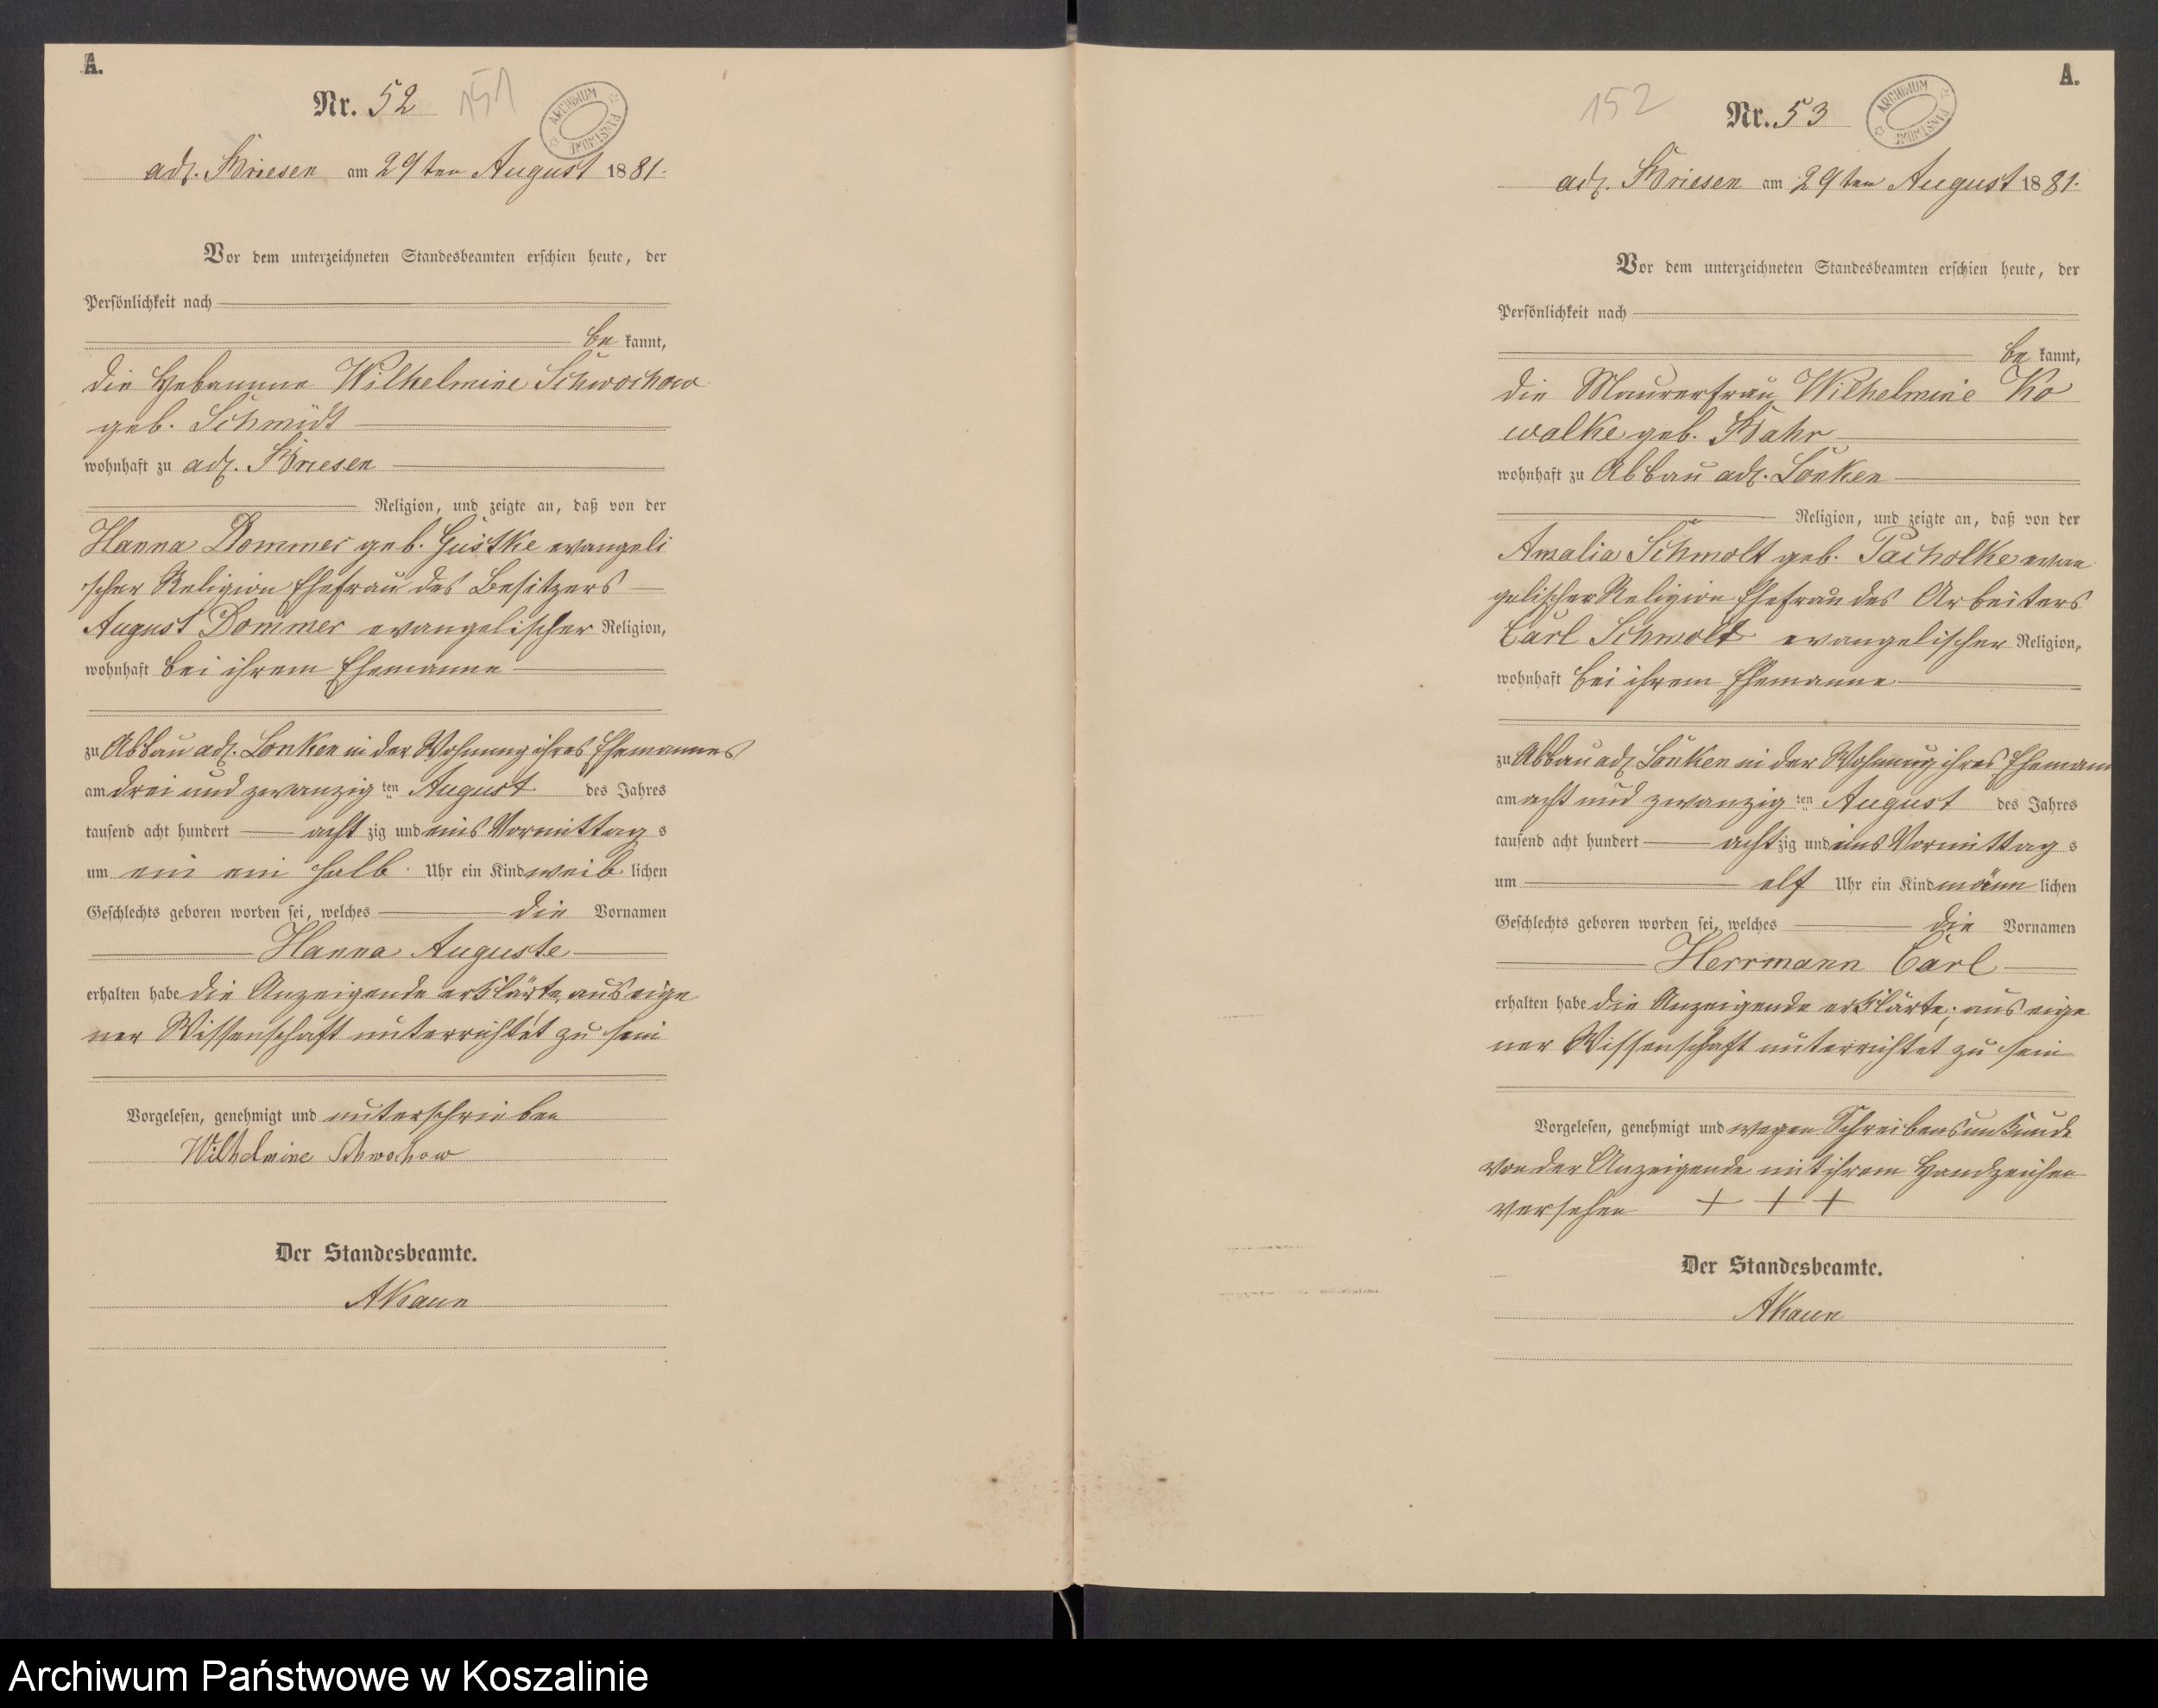 A.
Nr. 52 151
ARCHIWUM PAŃSTWOWE
adl. Briesen am 29ten August 1881.
Vor dem unterzeichneten Standesbeamten erschien heute, der
Persönlichkeit nach
be kannt,
die Hebamme Wilhelmine Schwochow
geb. Schmidt
wohnhaft zu adl. Briesen
Religion, und zeigte an, daß von der
Hanna Dommer geb. Gustke evangeli
scher Religion Ehefrau des Besitzers
August Dommer evangelischer Religion,
wohnhaft bei ihrem Ehemanne
zu Abbau adl. Lonken in der Wohnung ihres Ehemannes
am drei und zwanzig ten August des Jahres
tausend acht hundert acht zig und eins Vormittag s
um ein ein halb Uhr ein Kind weib lichen
Geschlechts geboren worden sei, welches die Vornamen
Hanna Auguste
erhalten habe die Anzeigende erklärte, aus eige
ner Wissenschaft unterrichtet zu sein
Vorgelesen, genehmigt und unterschrieben
Wilhelmine Schwochow
Der Standesbeamte.
A.
152 Nr. 53
ARCHIWUM PAŃSTWOWE
adl. Briesen am 29ten August 1881.
Vor dem unterzeichneten Standesbeamten erschien heute, der
Persönlichkeit nach
be kannt,
die Maurerfrau Wilhelmine Ko
walke geb. Bahr
wohnhaft zu Abbau adl. Lonken
Religion, und zeigte an, daß von der
Amalia Schmolt geb. Pacholke evan
gelischer Religion Ehefrau des Arbeiters
Carl Schmolt evangelischer Religion,
wohnhaft bei ihrem Ehemanne
zu Abbau adl. Lonken in der Wohnung ihres Ehemann
am acht und zwanzig ten August des Jahres
tausend acht hundert acht zig und eins Vormittag s
um elf Uhr ein Kind männ lichen
Geschlechts geboren worden sei, welches die Vornamen
Herrmann Carl
erhalten habe die Anzeigende erklärte, aus eige
ner Wissenschaft unterrichtet zu sein
Vorgelesen, genehmigt und wegen Schreibensunkunde
von der Anzeigende mit ihrem Handzeichen
versehen + + +
Der Standesbeamte.
Archiwum Państwowe w Koszalinie